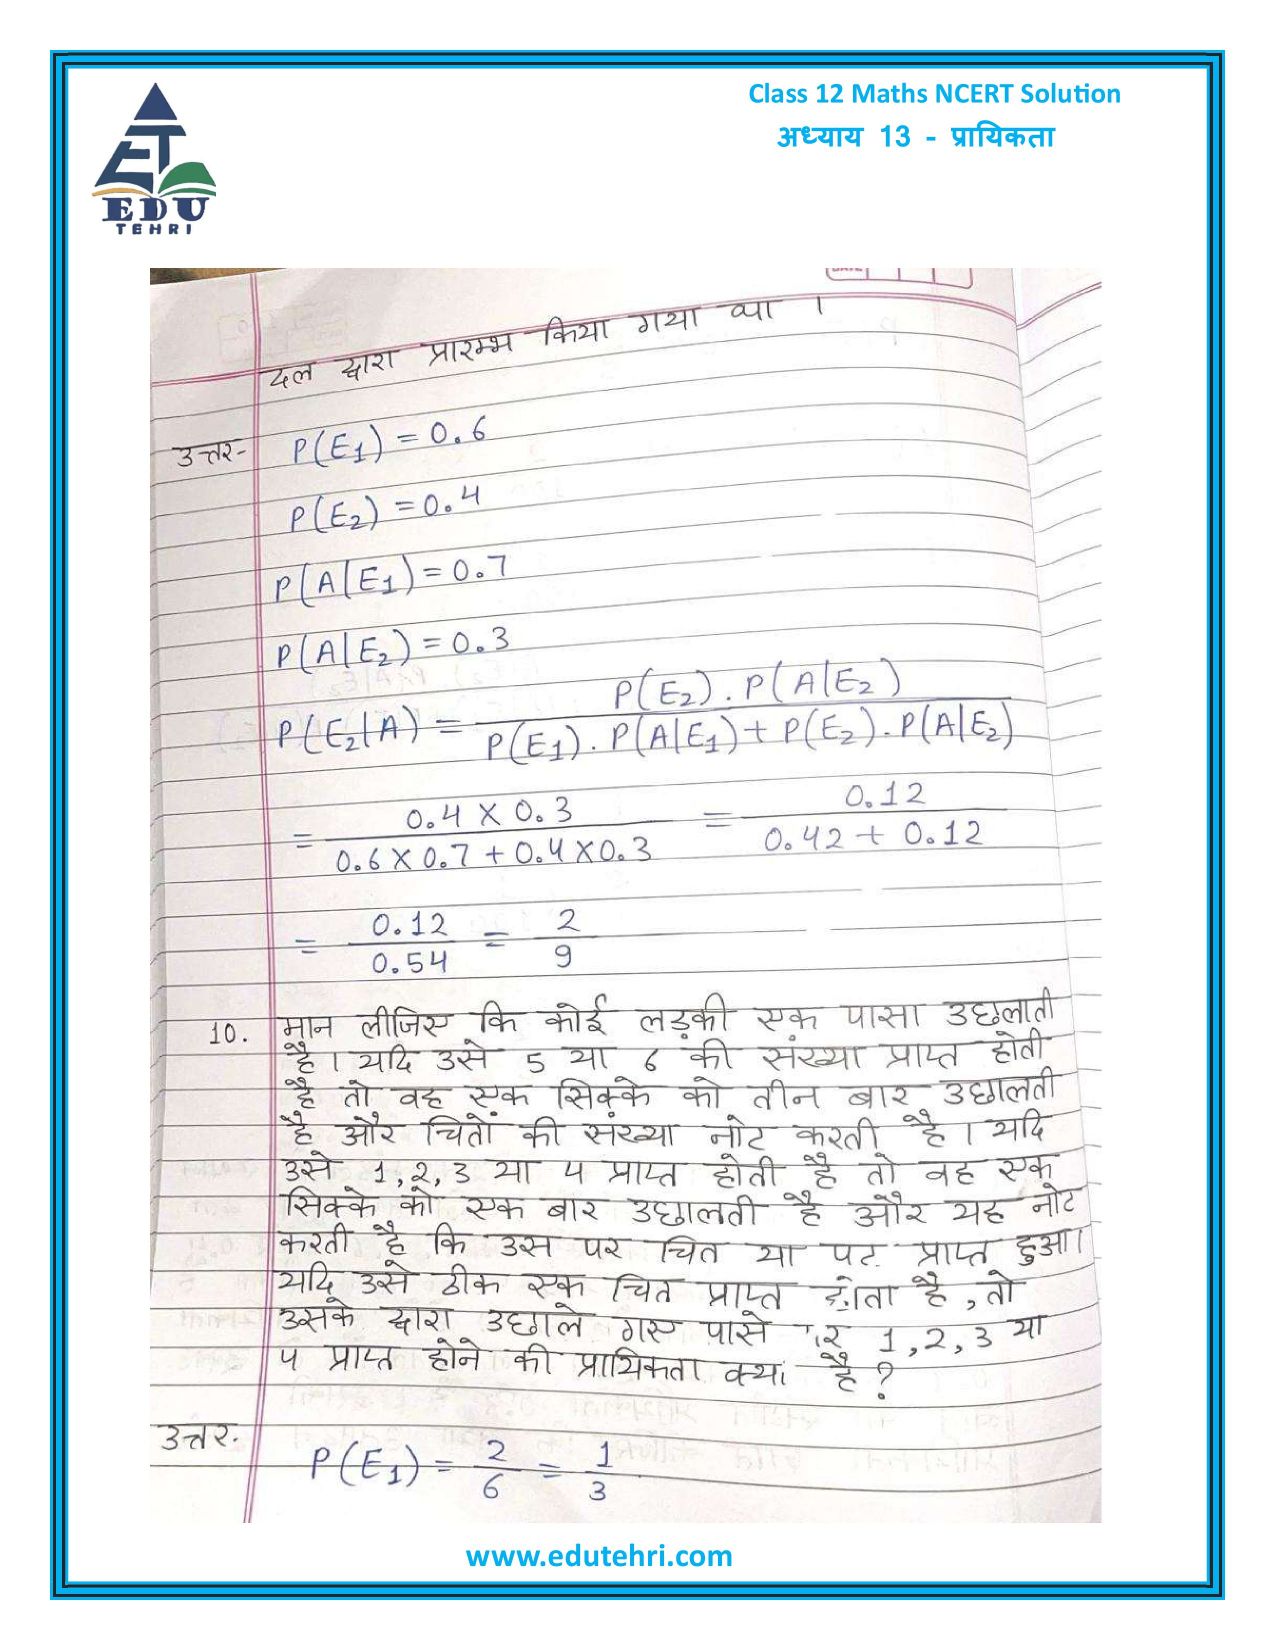 Class 12 Maths NCERT Solution
अध्याय 13 - प्रायिकता
EDU
TEHRI
दल द्वारा प्रारम्भ किया गया था ।
उत्तर- P(E1) = 0.6
P(E2) = 0.4
P(A|E1) = 0.7
P(A|E2) = 0.3
P(E2|A) = P(E2) . P(A|E2) / P(E1) . P(A|E1) + P(E2) . P(A|E2)
= 0.4 X 0.3 / 0.6 X 0.7 + 0.4 X 0.3 = 0.12 / 0.42 + 0.12
= 0.12 / 0.54 = 2 / 9
10. मान लीजिए कि कोई लड़की एक पासा उछालती
है । यदि उसे 5 या 6 की संख्या प्राप्त होती
है तो वह एक सिक्के को तीन बार उछालती
है और चितों की संख्या नोट करती है । यदि
उसे 1,2,3 या 4 प्राप्त होती है तो वह एक
सिक्के को एक बार उछालती है और यह नोट
करती है कि उस पर चित या पट प्राप्त हुआ।
यदि उसे ठीक एक चित प्राप्त होता है , तो
उसके द्वारा उछाले गए पासे पर 1,2,3 या
4 प्राप्त होने की प्रायिकता क्या है ?
उत्तर. P(E1) = 2 / 6 = 1 / 3
www.edutehri.com